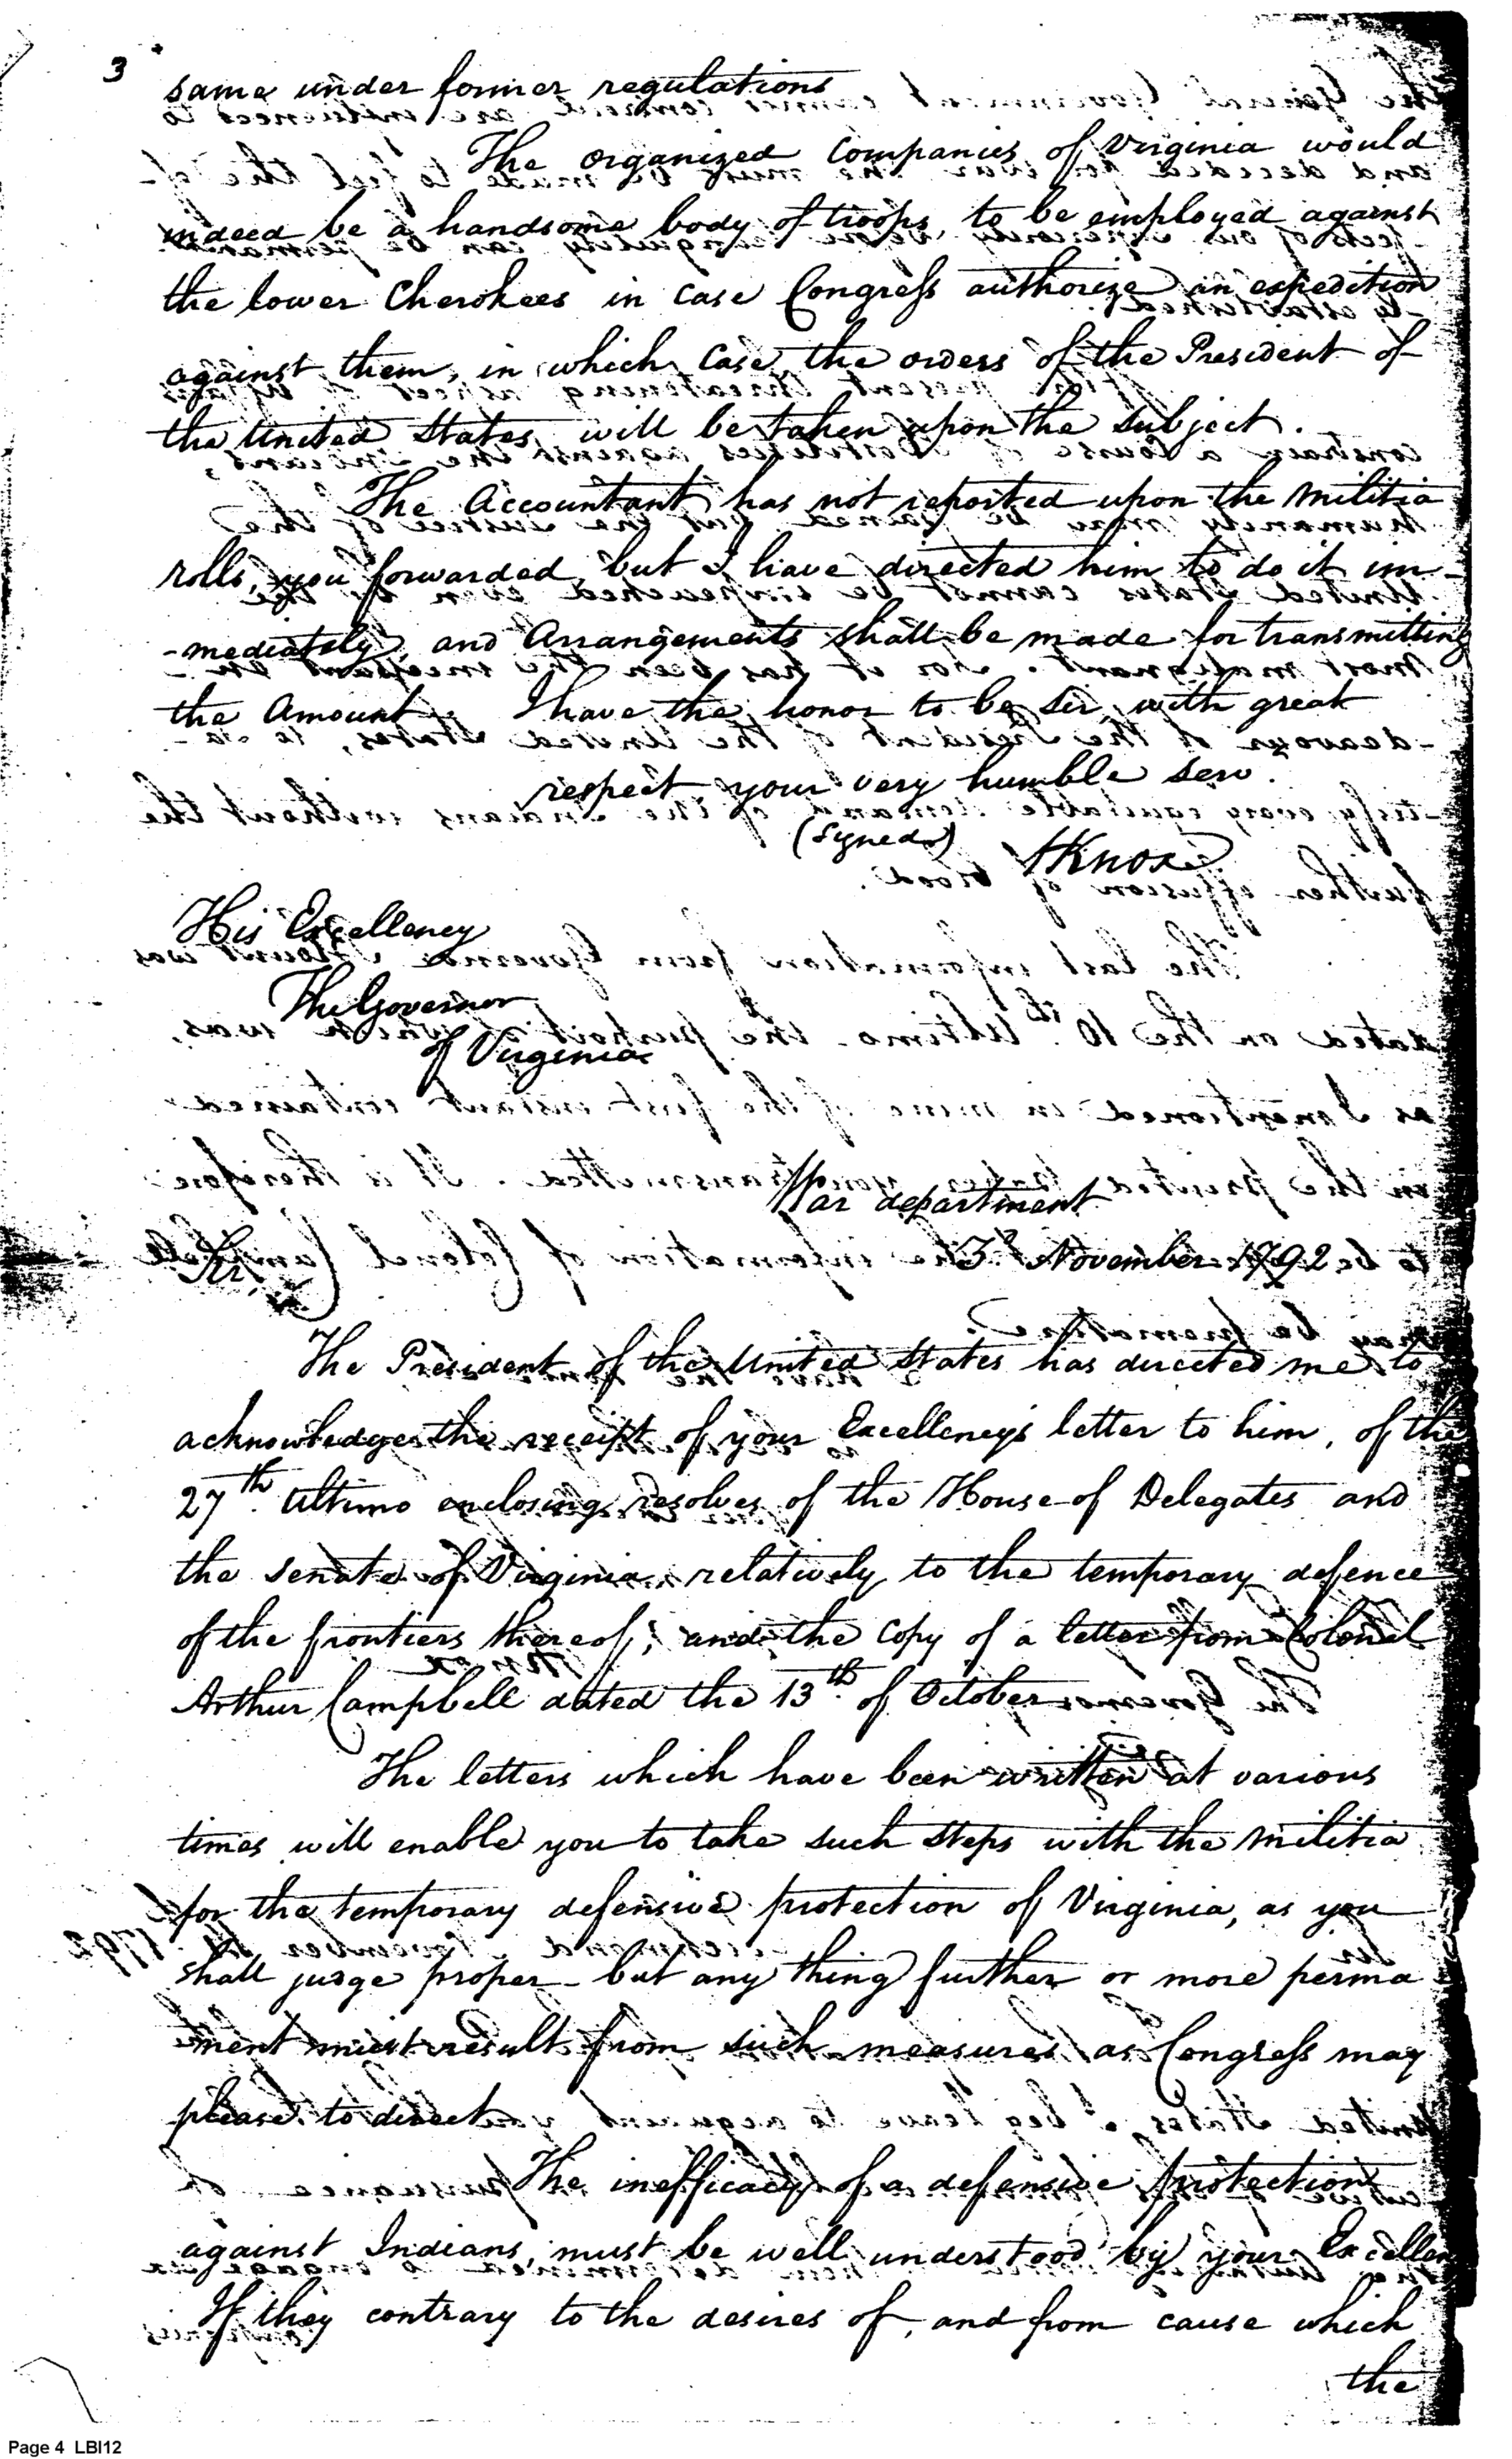 3
same under former regulations
The organized Companies of Virginia would
indeed be a handsome body of troops, to be employed against
the lower Cherokees in case Congress authorize an expedition
against them, in which case the orders of the President of
the United States will be taken upon the subject.
The Accountant has not reported upon the militia
rolls, you forwarded, but I have directed him to do it im-
-mediately, and Arrangements shall be made for transmitting
the Amount. I have the honor to be Sir, with great
respect your very humble serv.
(Signed) HKnox
His Excellency
The Governor
of Virginia
War department
3d November 1792
Sir,
The President of the United States has directed me to
acknowledge the receipt of your Excellency's letter to him, of the
27th Ultimo enclosing resolves of the House of Delegates and
the Senate of Virginia, relatively to the temporary defence
of the frontiers thereof; and the copy of a letter from Colonel
Arthur Campbell dated the 13th of October
The letters which have been written at various
times will enable you to take such steps with the militia
for the temporary defensive protection of Virginia, as you
shall judge proper - but any thing further or more perma
nent must result from such measures as Congress may
please to direct
The inefficacy of a defensive protection
against Indians, must be well understood by your Excellen
If they contrary to the desires of, and from cause which
the
Page 4 LBI12